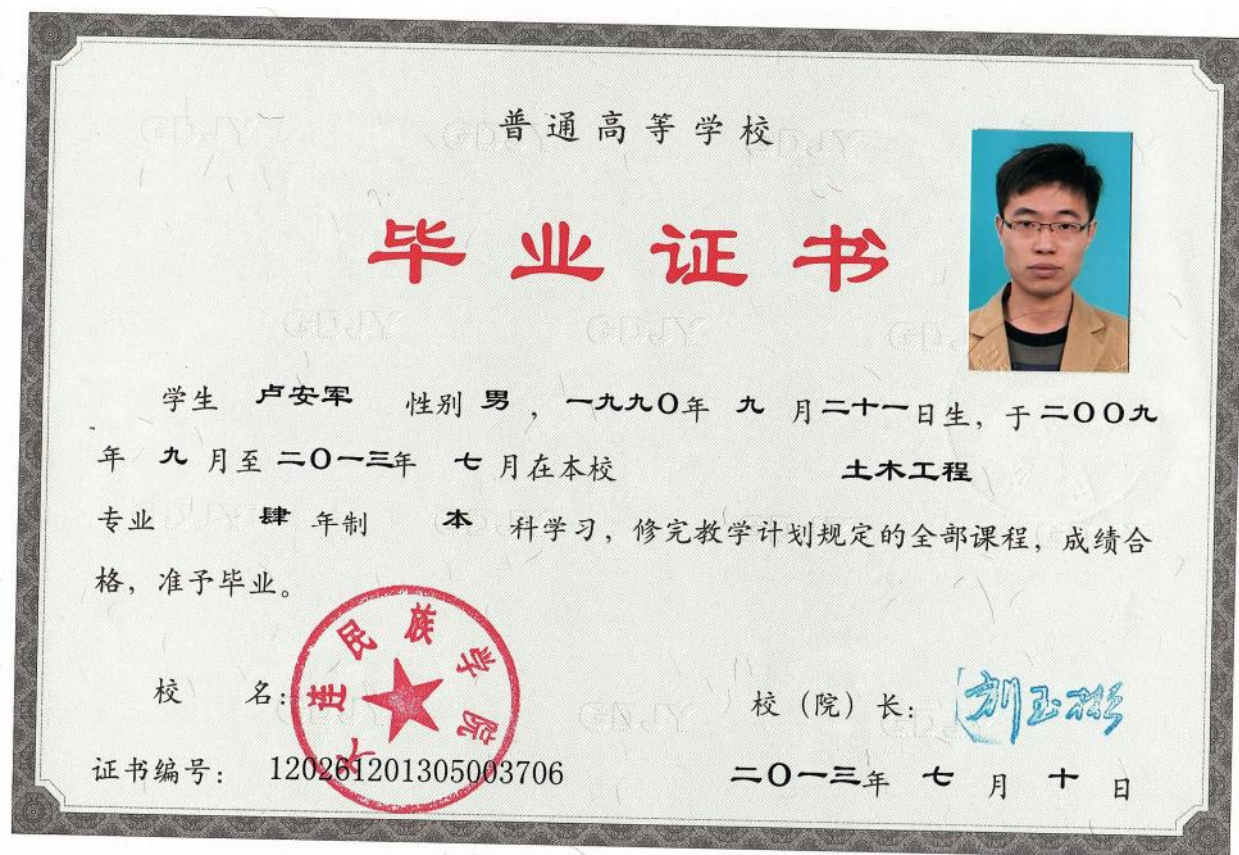 普通高等学校
毕业证书
学生 卢安军 性别 男，一九九〇年 九 月二十一日生，于二〇〇九
年 九 月至 二〇一三年 七 月在本校 土木工程
专业 肆 年制 本 科学习，修完教学计划规定的全部课程，成绩合
格，准予毕业。
校 名：
大连民族学院
校（院）长：刘玉彬
证书编号：120261201305003706
二〇一三年 七 月 十 日